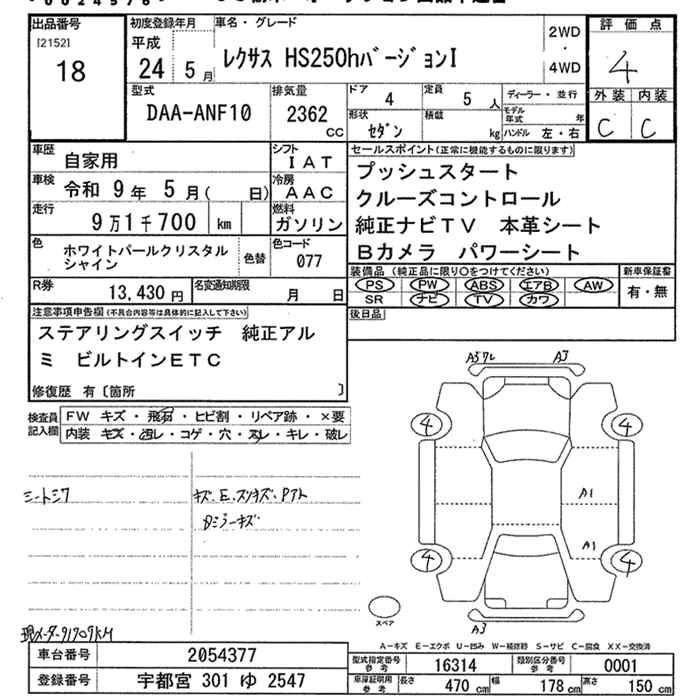 出品番号
[2152]
18
初度登録年月
平成
24 5 月
車名・グレード
レクサス HS250hバージョンI
2WD
4WD
評価点
4
外装 内装
C C
型式
DAA-ANF10
排気量
2362
CC
ドア
4
定員
5 人
形状
セダン
積載
kg
ディーラー・並行
モデル年式 年
ハンドル 左・右
車歴
自家用
シフト
IAT
車検
令和 9 年 5 月( 日)
冷房
AAC
走行
9 万 1 千 700 km
燃料
ガソリン
色
ホワイトパールクリスタル
シャイン
色替
色コード
077
R券
13,430 円
名変通知期限
月 日
セールスポイント(正常に機能するものに限ります)
プッシュスタート
クルーズコントロール
純正ナビTV 本革シート
Bカメラ パワーシート
装備品 (純正品に限り○をつけてください)
PS PW ABS エアB AW
SR ナビ TV カワ
新車保証書
有・無
後日品
注意事項申告欄(不具合内容等は具体的に記入して下さい)
ステアリングスイッチ 純正アル
ミ ビルトインETC
修復歴 有〔箇所 〕
検査員
記入欄
FW キズ・飛石・ヒビ割・リペア跡・×要
内装 キズ・汚レ・コゲ・穴・スレ・キレ・破レ
シートシワ
キズ、E、スリキズ、Pアト
Dミラーキズ
現メーター91709KM
A3 A3
4 4
A1
A1
4 4
スペア
A3
A-キズ E-エクボ U-凹み W-補修跡 S-サビ C-腐食 XX-交換済
車台番号
2054377
登録番号
宇都宮 301 ゆ 2547
型式指定番号
参考
16314
類別区分番号
参考
0001
車庫証明用
参考
長さ 470 cm
幅 178 cm
高さ 150 cm